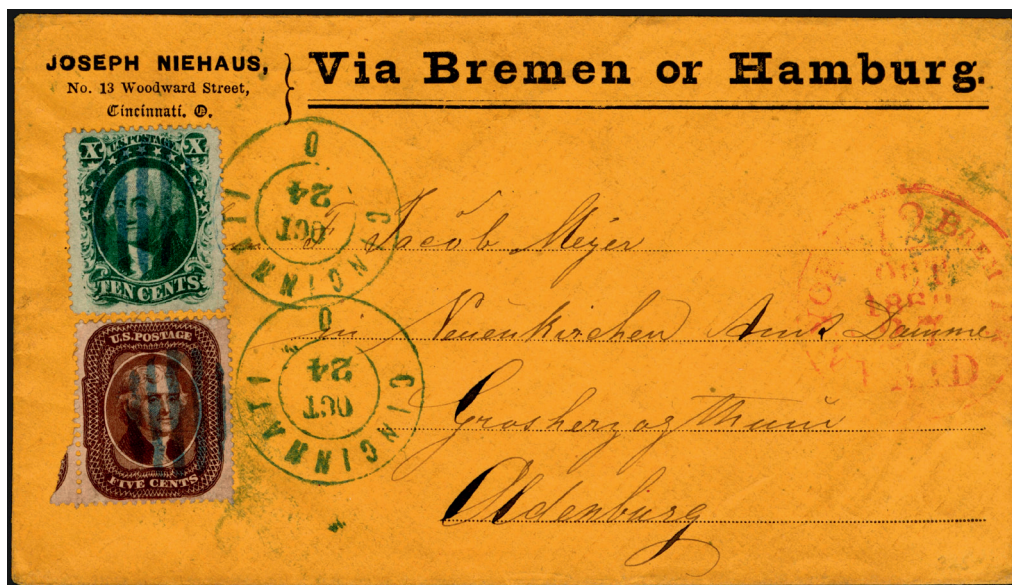 JOSEPH NIEHAUS,
No. 13 Woodward Street,
Cincinnati. O.
Via Bremen or Hamburg.
X U.S. POSTAGE X
TEN CENTS
U.S. POSTAGE
FIVE CENTS
CINCINNATI O
OCT
24
CINCINNATI O
OCT
24
Jacob Meyer
in Neuenkirchen Amt Damme
Grosherzogthum
Oldenburg
PAID